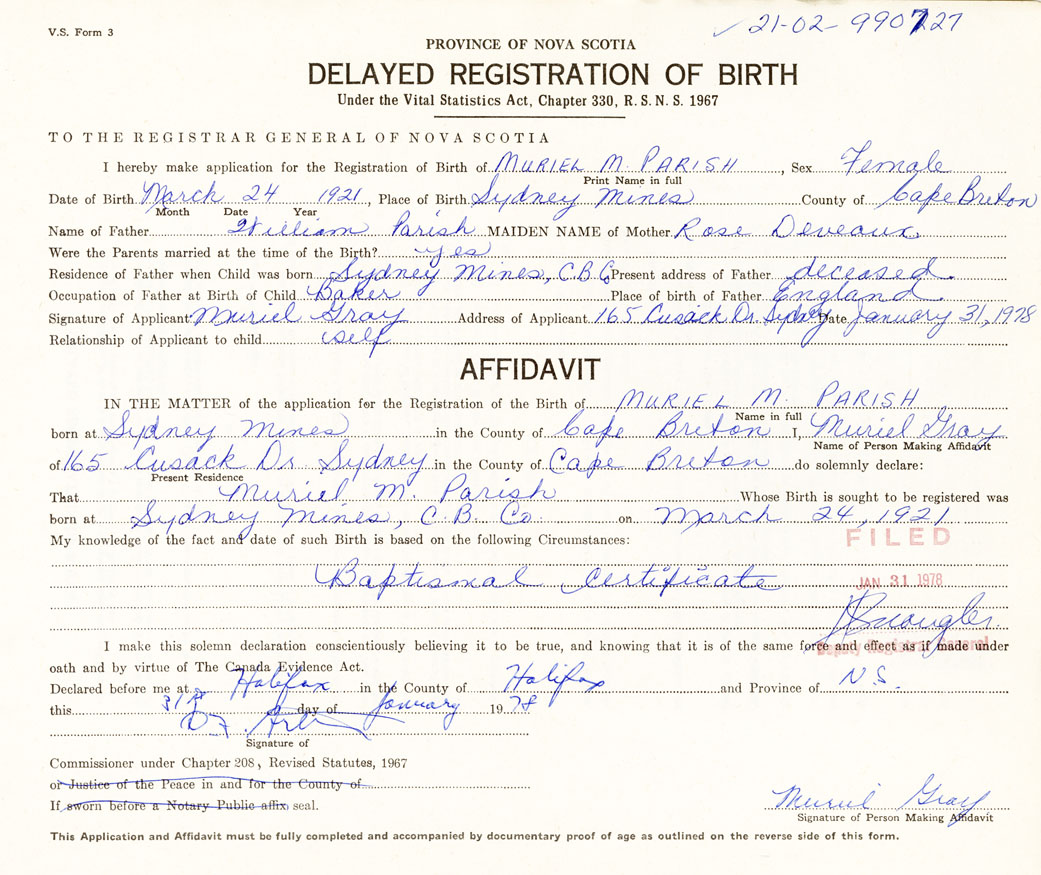 V.S. Form 3
21-02-990727
PROVINCE OF NOVA SCOTIA
DELAYED REGISTRATION OF BIRTH
Under the Vital Statistics Act, Chapter 330, R.S.N.S. 1967
TO THE REGISTRAR GENERAL OF NOVA SCOTIA
I hereby make application for the Registration of Birth of MURIEL M. PARISH, Sex Female
Print Name in full
Date of Birth March 24 1921, Place of Birth Sydney Mines County of Cape Breton
Month Date Year
Name of Father William Parish MAIDEN NAME of Mother Rose Deveaux
Were the Parents married at the time of the Birth? yes
Residence of Father when Child was born Sydney Mines, C.B. Co Present address of Father deceased.
Occupation of Father at Birth of Child Baker Place of birth of Father England
Signature of Applicant Muriel Gray Address of Applicant 165 Cusack Dr. Sydney Date January 31, 1978
Relationship of Applicant to child self
AFFIDAVIT
IN THE MATTER of the application for the Registration of the Birth of MURIEL M. PARISH
Name in full
born at Sydney Mines in the County of Cape Breton I, Muriel Gray
Name of Person Making Affidavit
of 165 Cusack Dr Sydney in the County of Cape Breton do solemnly declare:
Present Residence
That Muriel M. Parish Whose Birth is sought to be registered was
born at Sydney Mines, C.B. Co. on March 24, 1921
My knowledge of the fact and date of such Birth is based on the following Circumstances:
FILED
Baptismal Certificate
JAN 31 1978
I make this solemn declaration conscientiously believing it to be true, and knowing that it is of the same force and effect as if made under
Deputy Registrar General
oath and by virtue of The Canada Evidence Act.
Declared before me at Halifax in the County of Halifax and Province of N.S.
this 31st day of January 1978
Signature of
Commissioner under Chapter 208, Revised Statutes, 1967
or Justice of the Peace in and for the County of
If sworn before a Notary Public affix seal.
Muriel Gray
Signature of Person Making Affidavit
This Application and Affidavit must be fully completed and accompanied by documentary proof of age as outlined on the reverse side of this form.